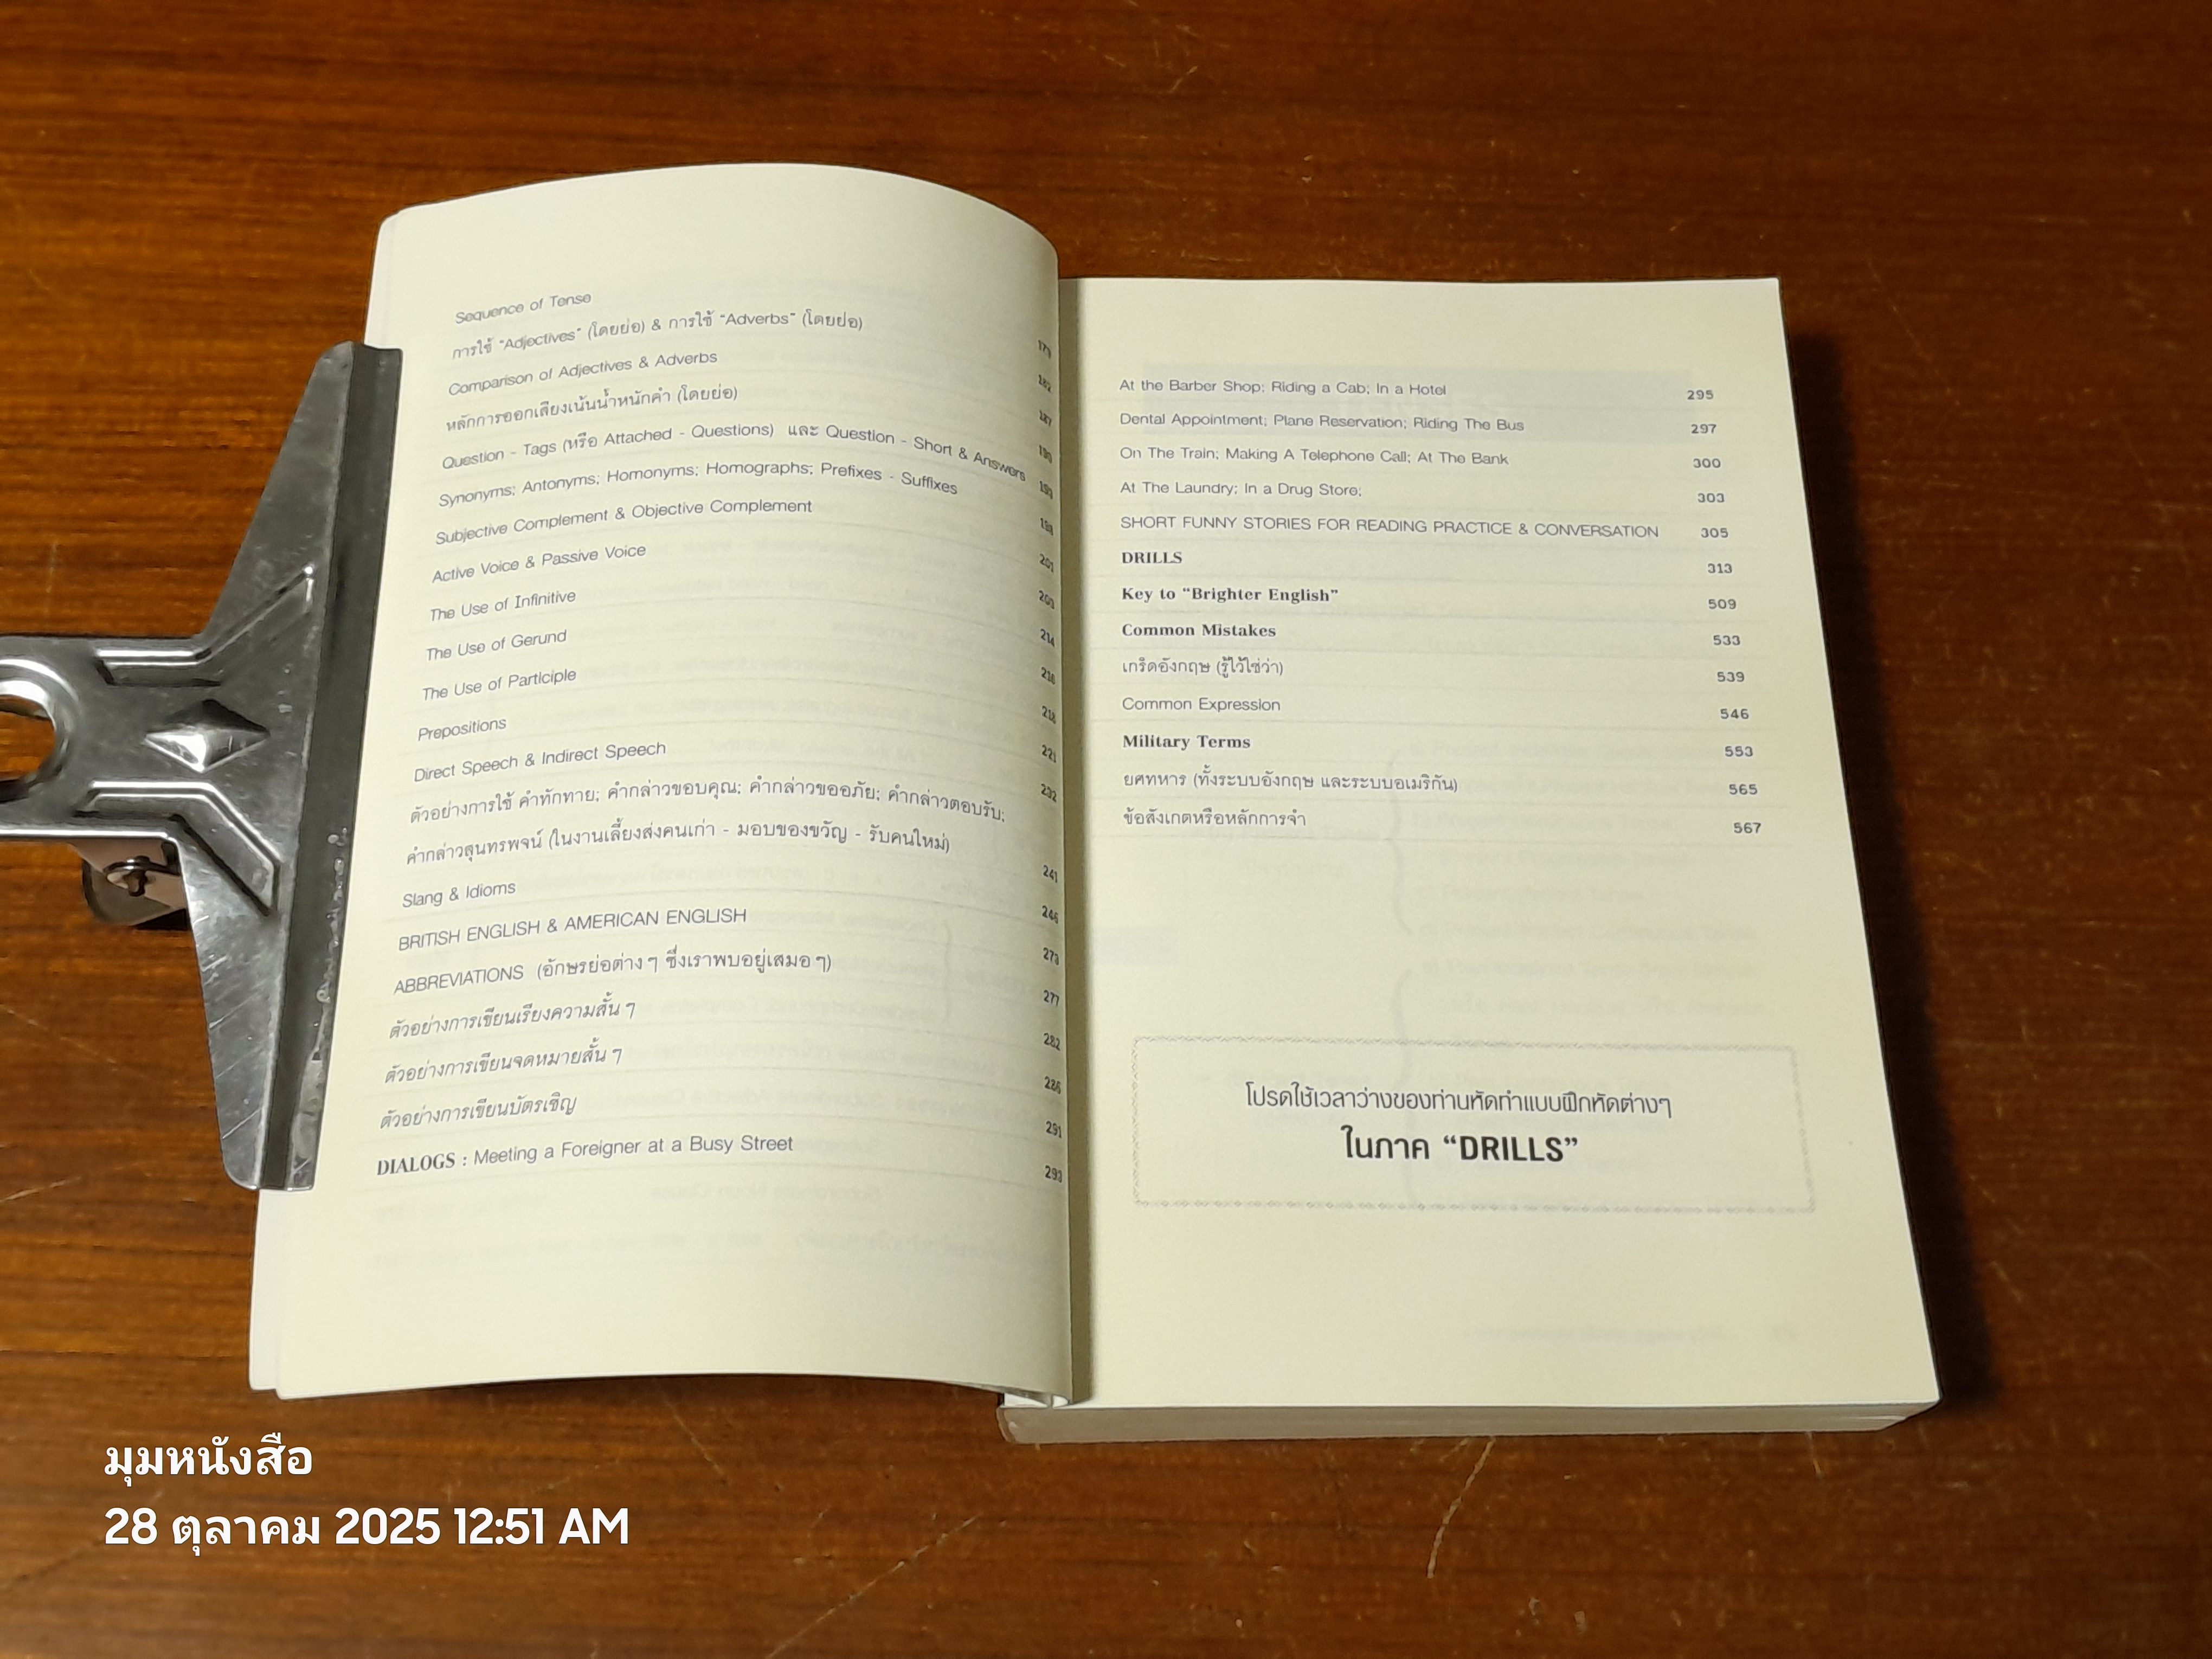 Sequence of Tense 179
การใช้ "Adjectives" (โดยย่อ) & การใช้ "Adverbs" (โดยย่อ) 182
Comparison of Adjectives & Adverbs 187
หลักการออกเสียงเน้นน้ำหนักคำ (โดยย่อ) 190
Question - Tags (หรือ Attached - Questions) และ Question - Short & Answers 193
Synonyms; Antonyms; Homonyms; Homographs; Prefixes - Suffixes 198
Subjective Complement & Objective Complement 201
Active Voice & Passive Voice
The Use of Infinitive 214
The Use of Gerund 216
The Use of Participle 218
Prepositions 221
Direct Speech & Indirect Speech 232
ตัวอย่างการใช้ คำทักทาย; คำกล่าวขอบคุณ; คำกล่าวขออภัย; คำกล่าวตอบรับ;
คำกล่าวสุนทรพจน์ (ในงานเลี้ยงส่งคนเก่า - มอบของขวัญ - รับคนใหม่) 241
Slang & Idioms 246
BRITISH ENGLISH & AMERICAN ENGLISH 273
ABBREVIATIONS (อักษรย่อต่างๆ ซึ่งเราพบอยู่เสมอๆ) 277
ตัวอย่างการเขียนเรียงความสั้นๆ 282
ตัวอย่างการเขียนจดหมายสั้นๆ 286
ตัวอย่างการเขียนบัตรเชิญ 291
DIALOGS : Meeting a Foreigner at a Busy Street 293
At the Barber Shop; Riding a Cab; In a Hotel 295
Dental Appointment; Plane Reservation; Riding The Bus 297
On The Train; Making A Telephone Call; At The Bank 300
At The Laundry; In a Drug Store; 303
SHORT FUNNY STORIES FOR READING PRACTICE & CONVERSATION 305
DRILLS 313
Key to "Brighter English" 509
Common Mistakes 533
เกร็ดอังกฤษ (รู้ไว้ใช่ว่า) 539
Common Expression 546
Military Terms 553
ยศทหาร (ทั้งระบบอังกฤษ และระบบอเมริกัน) 565
ข้อสังเกตหรือหลักการจำ 567
โปรดใช้เวลาว่างของท่านหัดทำแบบฝึกหัดต่างๆ
ในภาค "DRILLS"
มุมหนังสือ
28 ตุลาคม 2025 12:51 AM